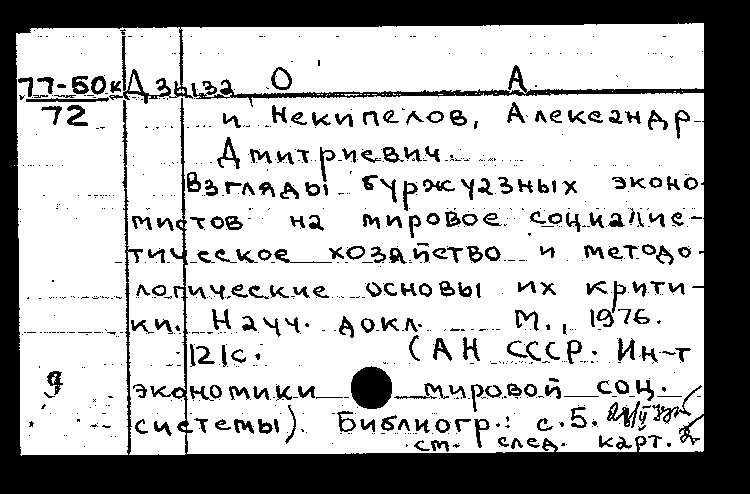 77-50к Дзыза О А
72 и Некипелов, Александр
Дмитриевич.
Взгляды буржуазных эконо-
мистов на мировое социалис-
тическое хозяйство и методо-
логические основы их крити-
ки. Науч. докл. М., 1976.
121с. (АН СССР. Ин-т
д экономики мировой соц.
системы). Библиогр.: с.5.
см. след. карт.